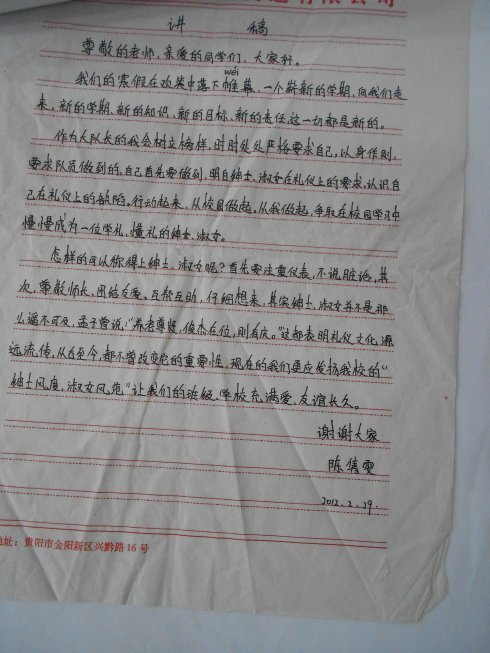 有限公司
讲 稿
尊敬的老师，亲爱的同学们，大家好。
wéi
我们的寒假在欢笑中落下帷幕，一个崭新的学期，向我们走
来，新的学期，新的知识，新的目标，新的责任，这一切都是新的。
作为大队长的我会树立榜样，时时处处严格要求自己，以身作则，
要求队员做到的，自己首先要做到，明白绅士、淑女在礼仪上的要求，认识自
己在礼仪上的缺陷，行动起来，从校园做起，从我做起，争取在校园学习中
慢慢成为一位学礼，懂礼的绅士，淑女。
怎样的可以称得上绅士，淑女呢？首先要注重仪表，不说脏话，其
次，尊敬师长，团结友爱，互帮互助，仔细想来，其实绅士，淑女并不是那
么遥不可及，孟子曾说：“养老尊贤，俊杰在位，则有庆。”这都表明礼仪文化，源
远流传，从古至今，都不曾改变它的重要性，现在的我们更应发扬我校的“
绅士风度，淑女风范”让我们的班级，学校充满爱，友谊长久。
谢谢大家
陈倩雯
2012.2.29
地址：贵阳市金阳新区兴黔路16号